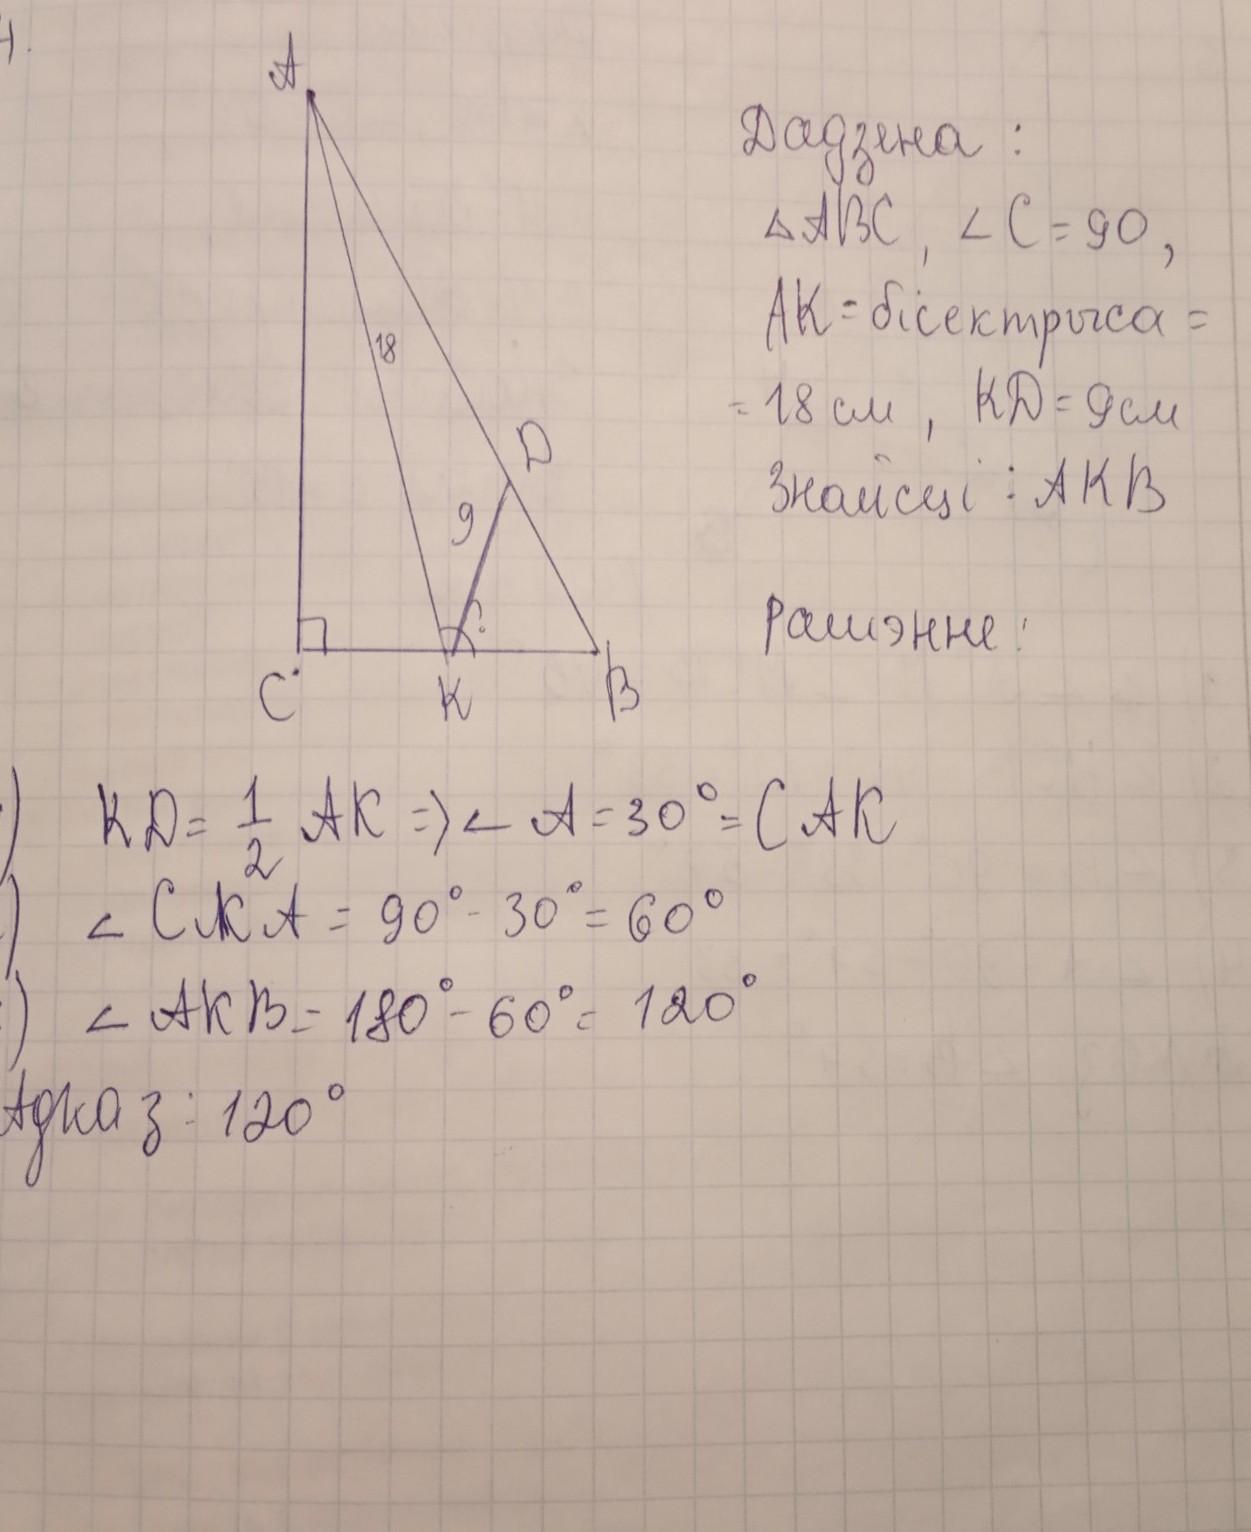 4.
A
18
D
9
C
K
B
Дадзена :
△ABC, ∠C = 90,
AK = бісектрыса =
= 18 см, KD = 9 см
Знайсці : AKB
Рашэнне :
) KD = 1/2 AK => ∠ A = 30° = CAK
) ∠ CKA = 90° - 30° = 60°
) ∠ AKB = 180° - 60° = 120°
Адказ : 120°